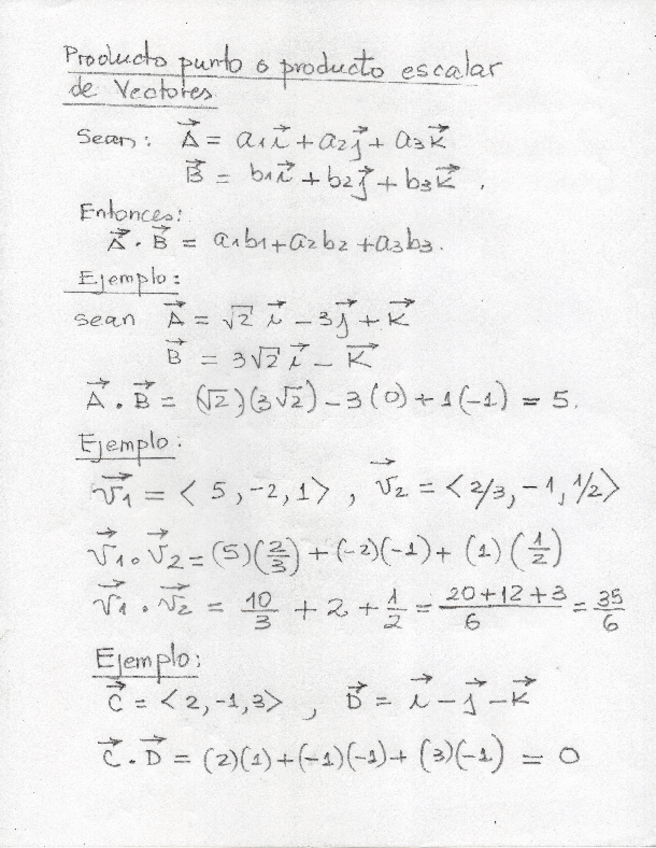 Producto punto o producto escalar
de Vectores
Sean: A⃗ = a₁i⃗ + a₂j⃗ + a₃k⃗
B⃗ = b₁i⃗ + b₂j⃗ + b₃k⃗ .
Entonces:
A⃗ . B⃗ = a₁b₁ + a₂b₂ + a₃b₃.
Ejemplo:
sean A⃗ = √2 i⃗ - 3j⃗ + k⃗
B⃗ = 3√2 i⃗ - k⃗
A⃗ . B⃗ = (√2)(3√2) - 3(0) + 1(-1) = 5.
Ejemplo:
v⃗₁ = < 5, -2, 1 > , v⃗₂ = < 2/3, -1, 1/2 >
v⃗₁ . v⃗₂ = (5)(2/3) + (-2)(-1) + (1)(1/2)
v⃗₁ . v⃗₂ = 10/3 + 2 + 1/2 = (20+12+3)/6 = 35/6
Ejemplo:
C⃗ = < 2, -1, 3 > , D⃗ = i⃗ - j⃗ - k⃗
C⃗ . D⃗ = (2)(1) + (-1)(-1) + (3)(-1) = 0